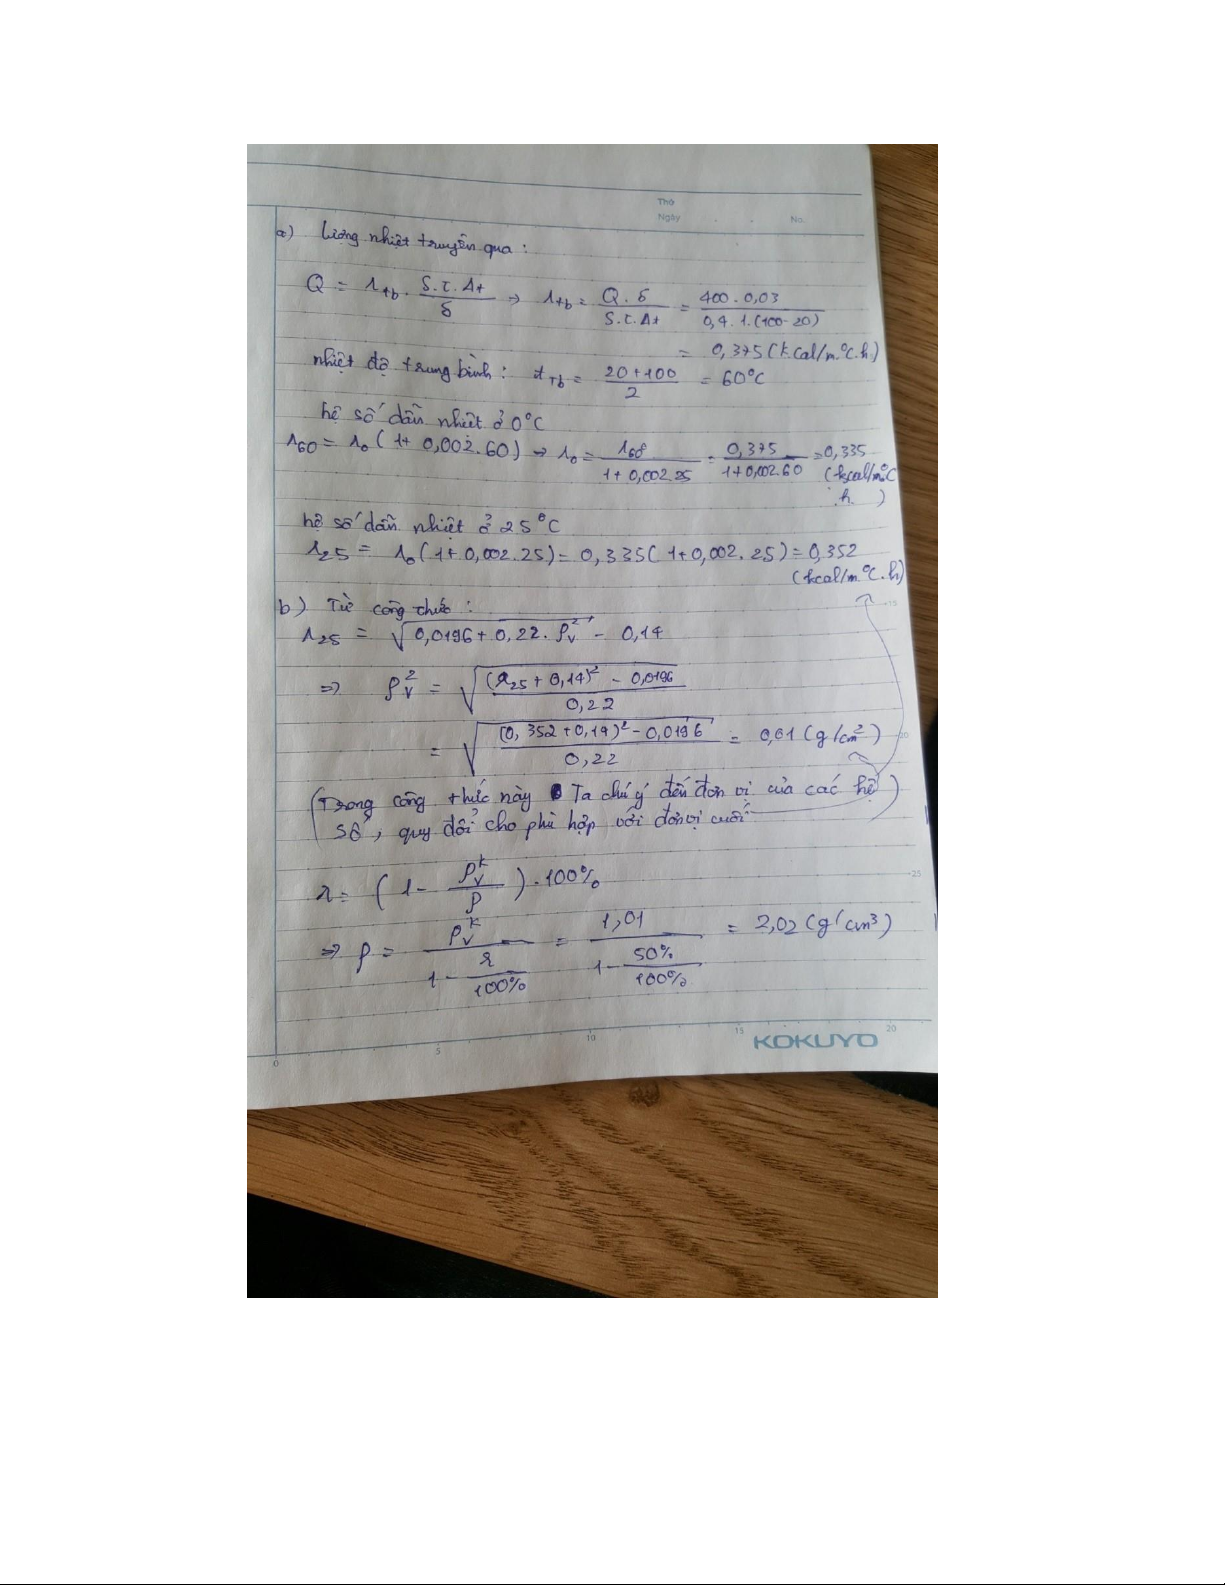 Thứ
Ngày . . No.
a) Lượng nhiệt truyền qua :
Q = λtb . S.τ.Δt / δ → λtb = Q . δ / S.τ.Δt = 400 . 0,03 / 0,4 . 1.(100-20)
= 0,375 (kcal/m.°C.h)
nhiệt độ trung bình : tTb = 20+100 / 2 = 60°C
hệ số dẫn nhiệt ở 0°C
λ60 = λ0 ( 1+ 0,002.60) → λ0 = λ60 / 1+0,002.25 = 0,375 / 1+0,002.60 = 0,335
(kcal/m°C
.h. )
hệ số dẫn nhiệt ở 25°C
λ25 = λ0 (1+0,002.25) = 0,335( 1+0,002.25) = 0,352
(kcal/m.°C.h)
b) Từ công thức :
λ25 = √(0,0196 + 0,22. ρv²) - 0,14
⇒ ρv² = √((λ25 + 0,14)² - 0,0196 / 0,22)
= √((0,352+0,14)² - 0,0196 / 0,22) = 0,01 (g/cm²)
(Trong công thức này Ta chú ý đến đơn vị của các hệ )
số, quy đổi cho phù hợp với đơn vị cuối
r = ( 1 - ρv^k / ρ ) . 100%
⇒ ρ = ρv^k / (1 - r / 100%) = 1,01 / (1 - 50% / 100%) = 2,02 (g/cm³)
0 5 10 15 20
15
20
25
KOKUYO